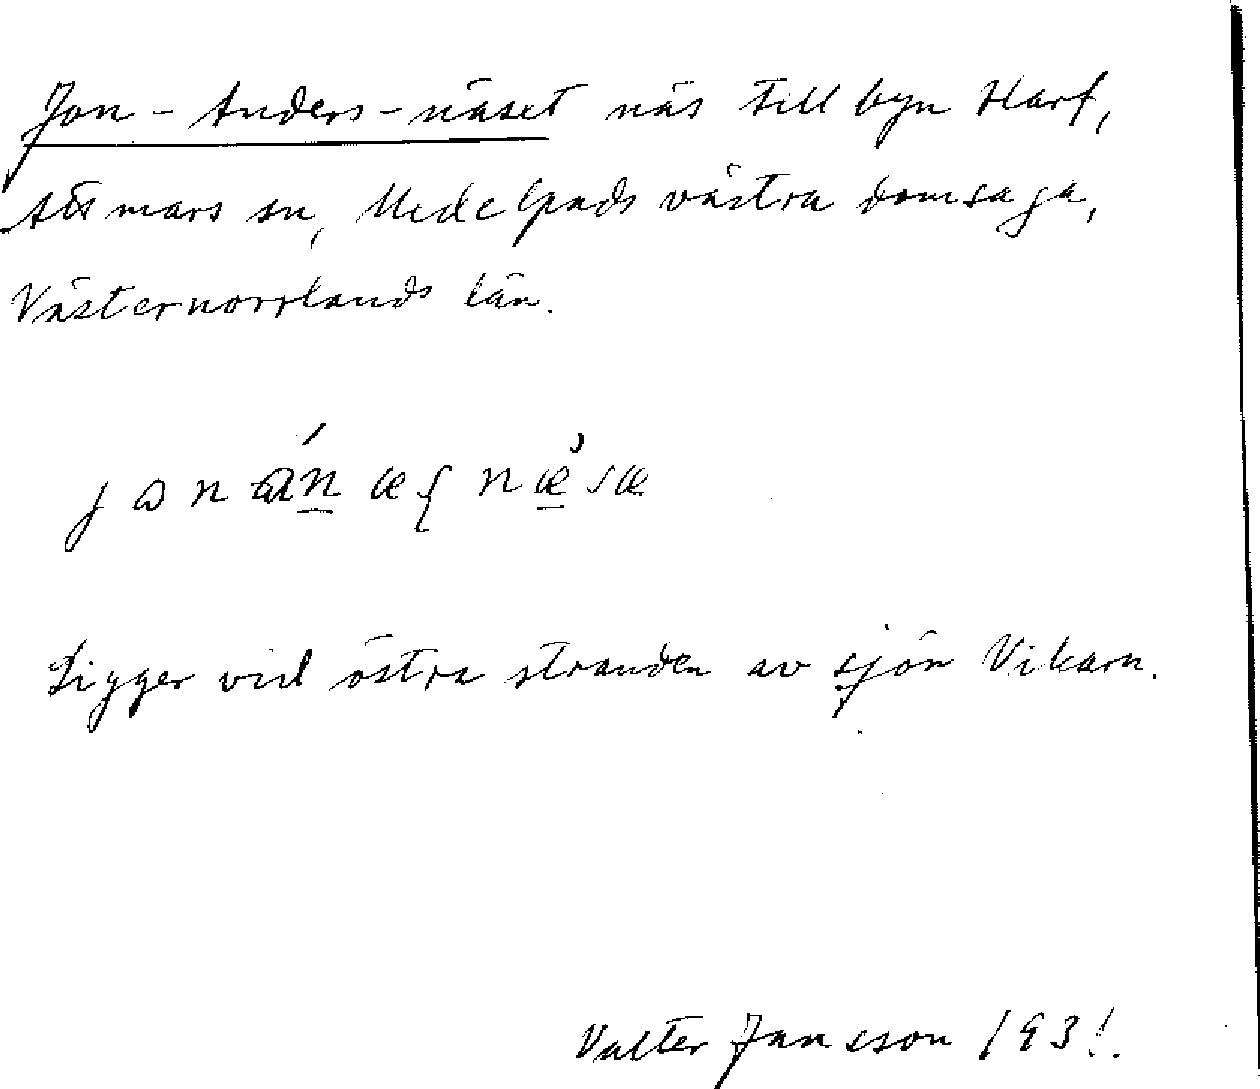 Jon-Anders-näset näs till byn Harf,
Attmars sn, Medelpads västra domsaga,
Västernorrlands län.
Ligger vid östra stranden av sjön Vikarn.
Valter Jansson 1931.